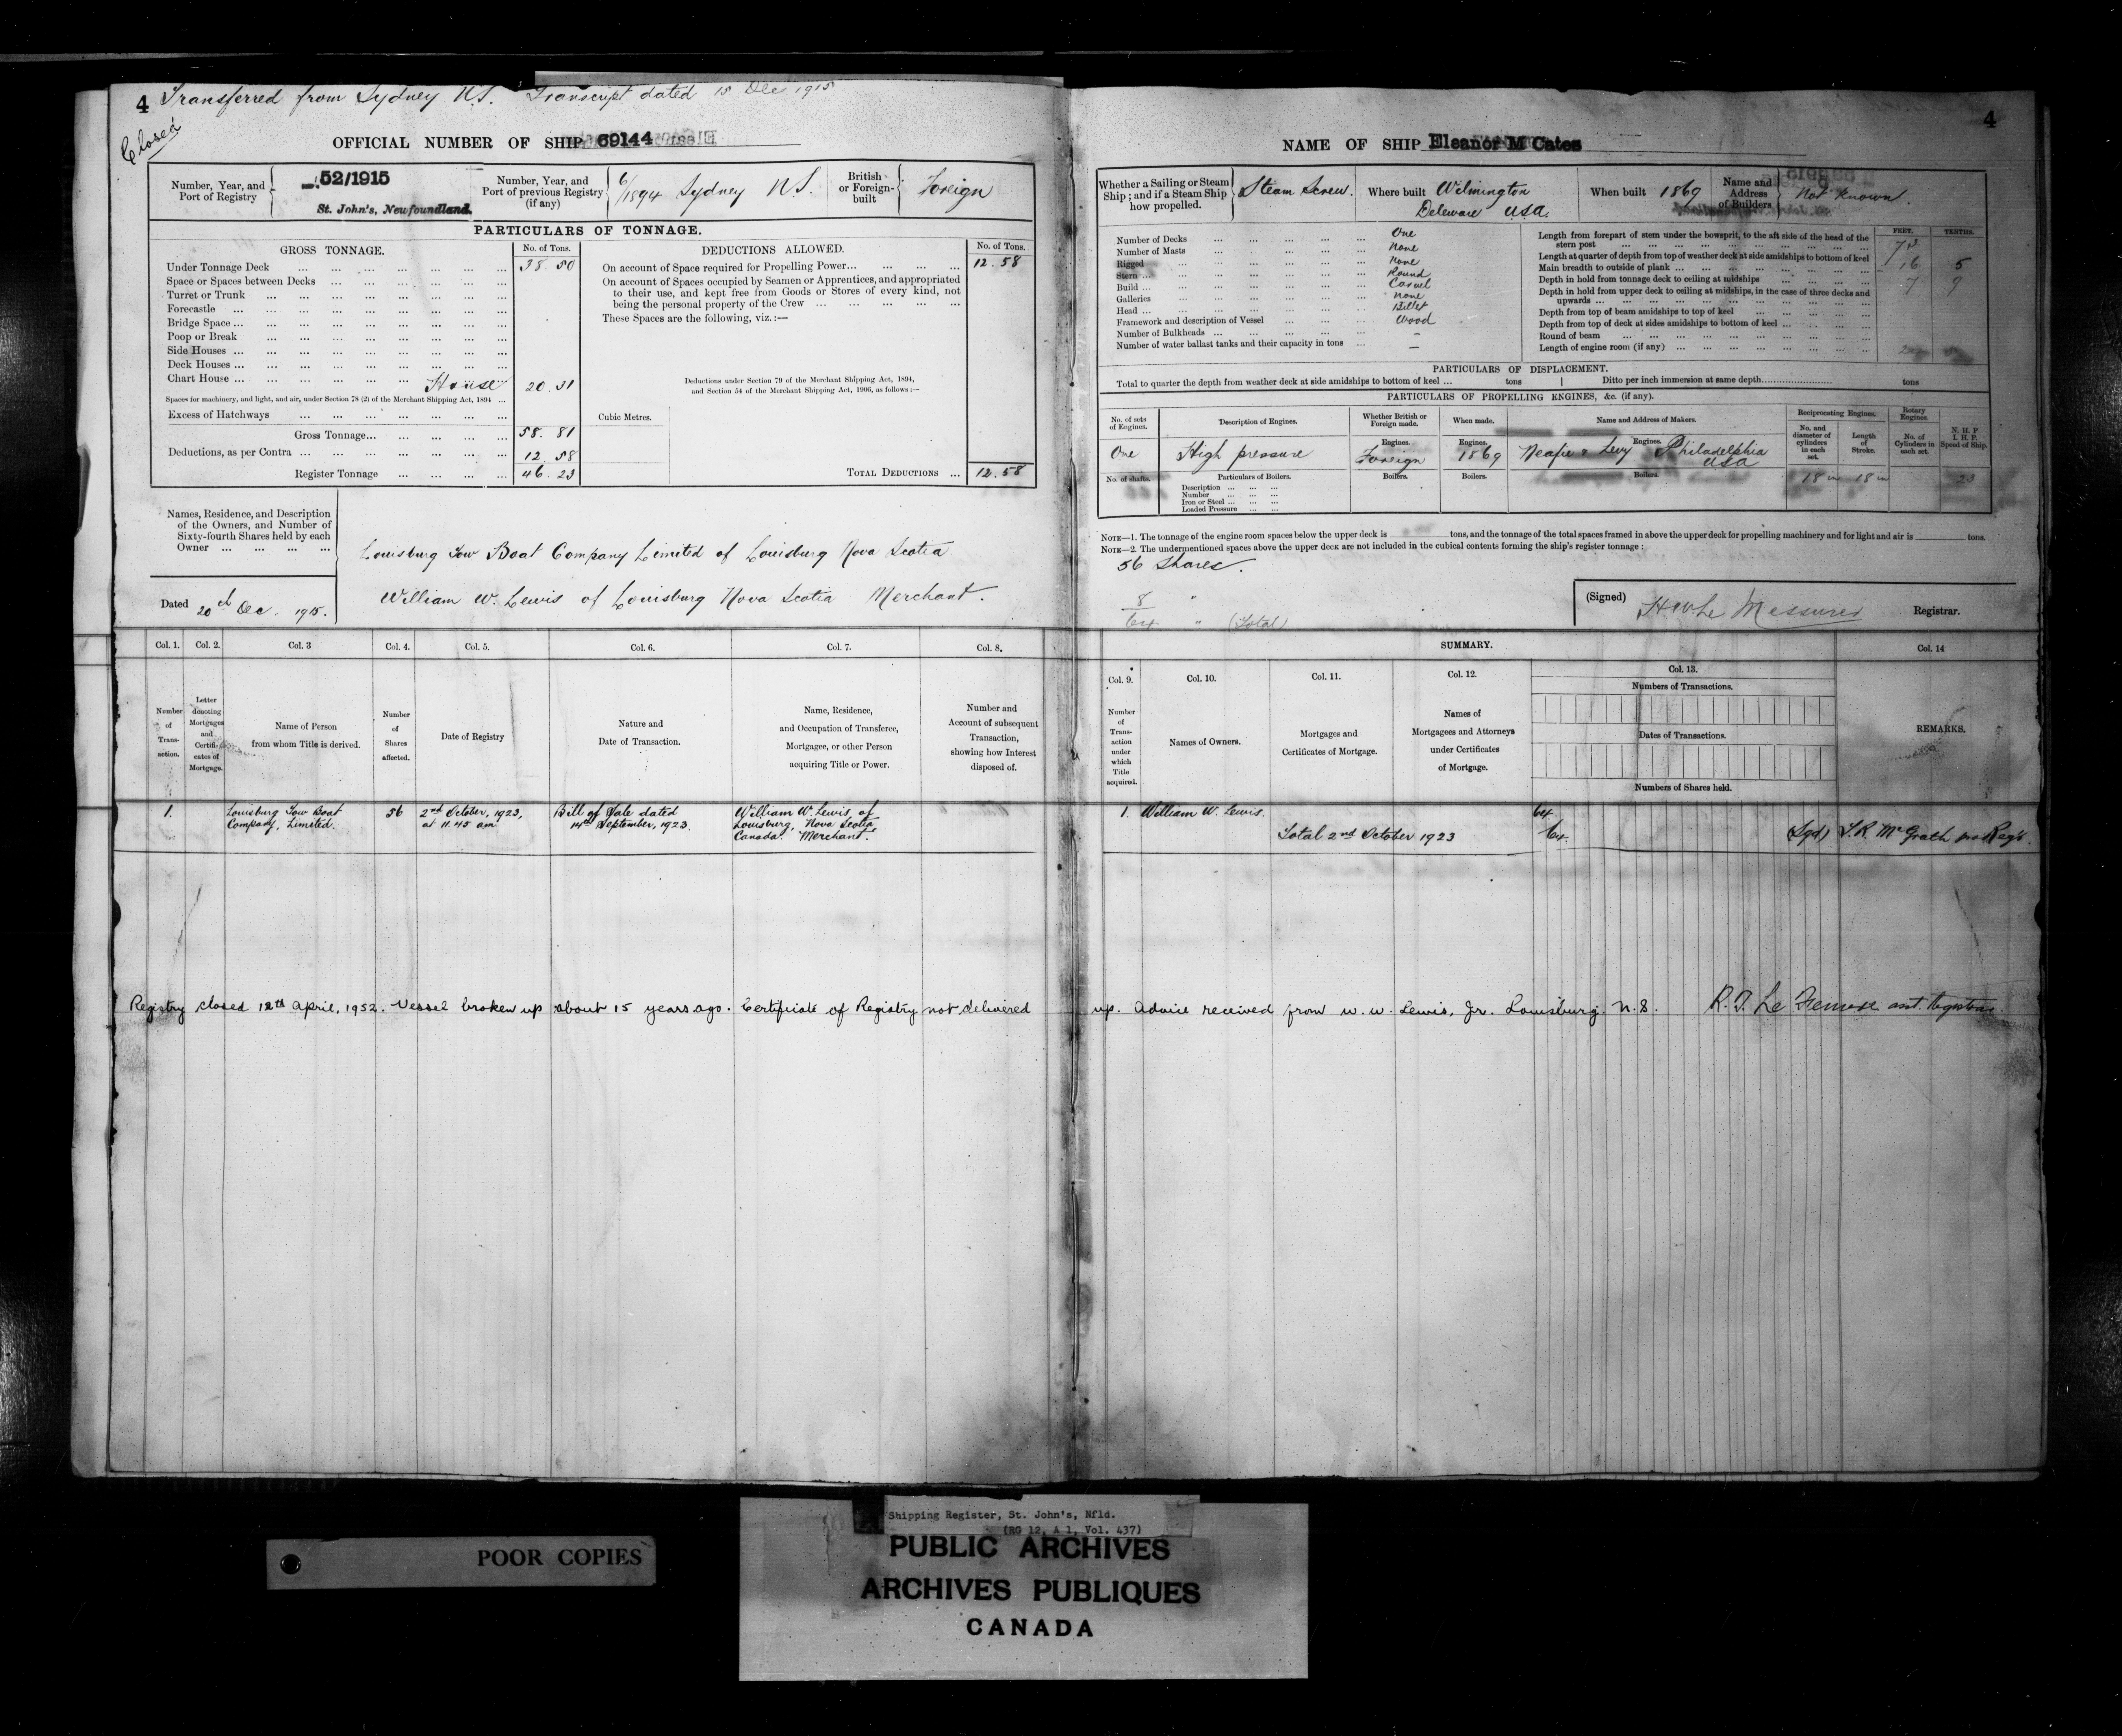 4 Transferred from Sydney N.S. Transcript dated 15 Dec 1915
Closed
OFFICIAL NUMBER OF SHIP 69144
Number, Year, and Port of Registry
52/1915
St. John's, Newfoundland.
Number, Year, and Port of previous Registry (if any)
6/1894 Sydney N.S.
British or Foreign-built
Foreign
PARTICULARS OF TONNAGE.
GROSS TONNAGE.
No. of Tons.
Under Tonnage Deck ... 38.50
Space or Spaces between Decks
Turret or Trunk
Forecastle
Bridge Space
Poop or Break
Side Houses
Deck Houses
Chart House
House 20.31
Spaces for machinery, and light, and air, under Section 78 (2) of the Merchant Shipping Act, 1894
Excess of Hatchways
Gross Tonnage... 58.81
Deductions, as per Contra ... 12.58
Register Tonnage ... 46.23
DEDUCTIONS ALLOWED.
No. of Tons.
On account of Space required for Propelling Power... 12.58
On account of Spaces occupied by Seamen or Apprentices, and appropriated
to their use, and kept free from Goods or Stores of every kind, not
being the personal property of the Crew
These Spaces are the following, viz.:—
Deductions under Section 79 of the Merchant Shipping Act, 1894,
and Section 54 of the Merchant Shipping Act, 1906, as follows:—
Cubic Metres.
TOTAL DEDUCTIONS ... 12.58
Names, Residence, and Description
of the Owners, and Number of
Sixty-fourth Shares held by each
Owner
Louisburg Tow Boat Company Limited of Louisburg Nova Scotia
William W. Lewis of Louisburg Nova Scotia Merchant.
Dated 20th Dec. 1915.
Col. 1. Col. 2. Col. 3 Col. 4. Col. 5. Col. 6. Col. 7. Col. 8.
Number of Transaction.
Letter denoting Mortgages and Certificates of Mortgage.
Name of Person from whom Title is derived.
Number of Shares affected.
Date of Registry
Nature and Date of Transaction.
Name, Residence, and Occupation of Transferee, Mortgagee, or other Person acquiring Title or Power.
Number and Account of subsequent Transaction, showing how Interest disposed of.
1.
Louisburg Tow Boat
Company, Limited.
56
2nd October, 1923,
at 11.45 am
Bill of Sale dated
14th September, 1923.
William W. Lewis of
Louisburg, Nova Scotia
Canada. Merchant.
Registry closed 12th April, 1952. Vessel broken up about 15 years ago. Certificate of Registry not delivered
4
NAME OF SHIP Eleanor M Cates
Whether a Sailing or Steam Ship; and if a Steam Ship how propelled.
Steam Screw.
Where built
Wilmington
Deleware USA.
When built 1869
Name and Address of Builders
Not Known.
Number of Decks ... One
Number of Masts ... None
Rigged ... None
Stern ... Round
Build ... Carvel
Galleries ... none
Head ... Billet
Framework and description of Vessel ... Wood
Number of Bulkheads ... –
Number of water ballast tanks and their capacity in tons ... –
FEET. TENTHS.
Length from forepart of stem under the bowsprit, to the aft side of the head of the
stern post ... 73
Length at quarter of depth from top of weather deck at side amidships to bottom of keel
Main breadth to outside of plank ... 16 5
Depth in hold from tonnage deck to ceiling at midships ... 7 9
Depth in hold from upper deck to ceiling at midships, in the case of three decks and
upwards
Depth from top of beam amidships to top of keel
Depth from top of deck at sides amidships to bottom of keel
Round of beam
Length of engine room (if any)
PARTICULARS OF DISPLACEMENT.
Total to quarter the depth from weather deck at side amidships to bottom of keel ... tons | Ditto per inch immersion at same depth ... tons
PARTICULARS OF PROPELLING ENGINES, &c. (if any).
No. of sets of Engines.
Description of Engines.
Whether British or Foreign made.
When made.
Name and Address of Makers.
Reciprocating Engines.
No. and diameter of cylinders in each set.
Length of Stroke.
Rotary Engines.
No. of Cylinders in each set.
N. H. P.
I. H. P.
Speed of Ship.
One
High pressure
Engines.
Foreign
Engines.
1869
Engines.
Neafie & Levy Philadelphia
USA
18 in 18 in 23
No. of shafts.
Particulars of Boilers.
Boilers. Boilers. Boilers.
Description
Number
Iron or Steel
Loaded Pressure
NOTE—1. The tonnage of the engine room spaces below the upper deck is tons, and the tonnage of the total spaces framed in above the upper deck for propelling machinery and for light and air is tons.
NOTE—2. The undermentioned spaces above the upper deck are not included in the cubical contents forming the ship's register tonnage:
56 Shares.
8 "
64 " (Total)
(Signed) H W Le Messurier Registrar.
SUMMARY.
Col. 9. Col. 10. Col. 11. Col. 12. Col. 13. Col. 14
Number of Transaction under which Title acquired.
Names of Owners.
Mortgages and Certificates of Mortgage.
Names of Mortgagees and Attorneys under Certificates of Mortgage.
Numbers of Transactions.
Dates of Transactions.
Numbers of Shares held.
REMARKS.
1. William W. Lewis. 64
Total 2nd October 1923 64. (Sgd) McGrath
up. Advice received from W. W. Lewis, Jr. Louisburg. N.S. asst. Registrar.
POOR COPIES
Shipping Register, St. John's, Nfld.
(RG 12, A 1, Vol. 437)
PUBLIC ARCHIVES
ARCHIVES PUBLIQUES
CANADA